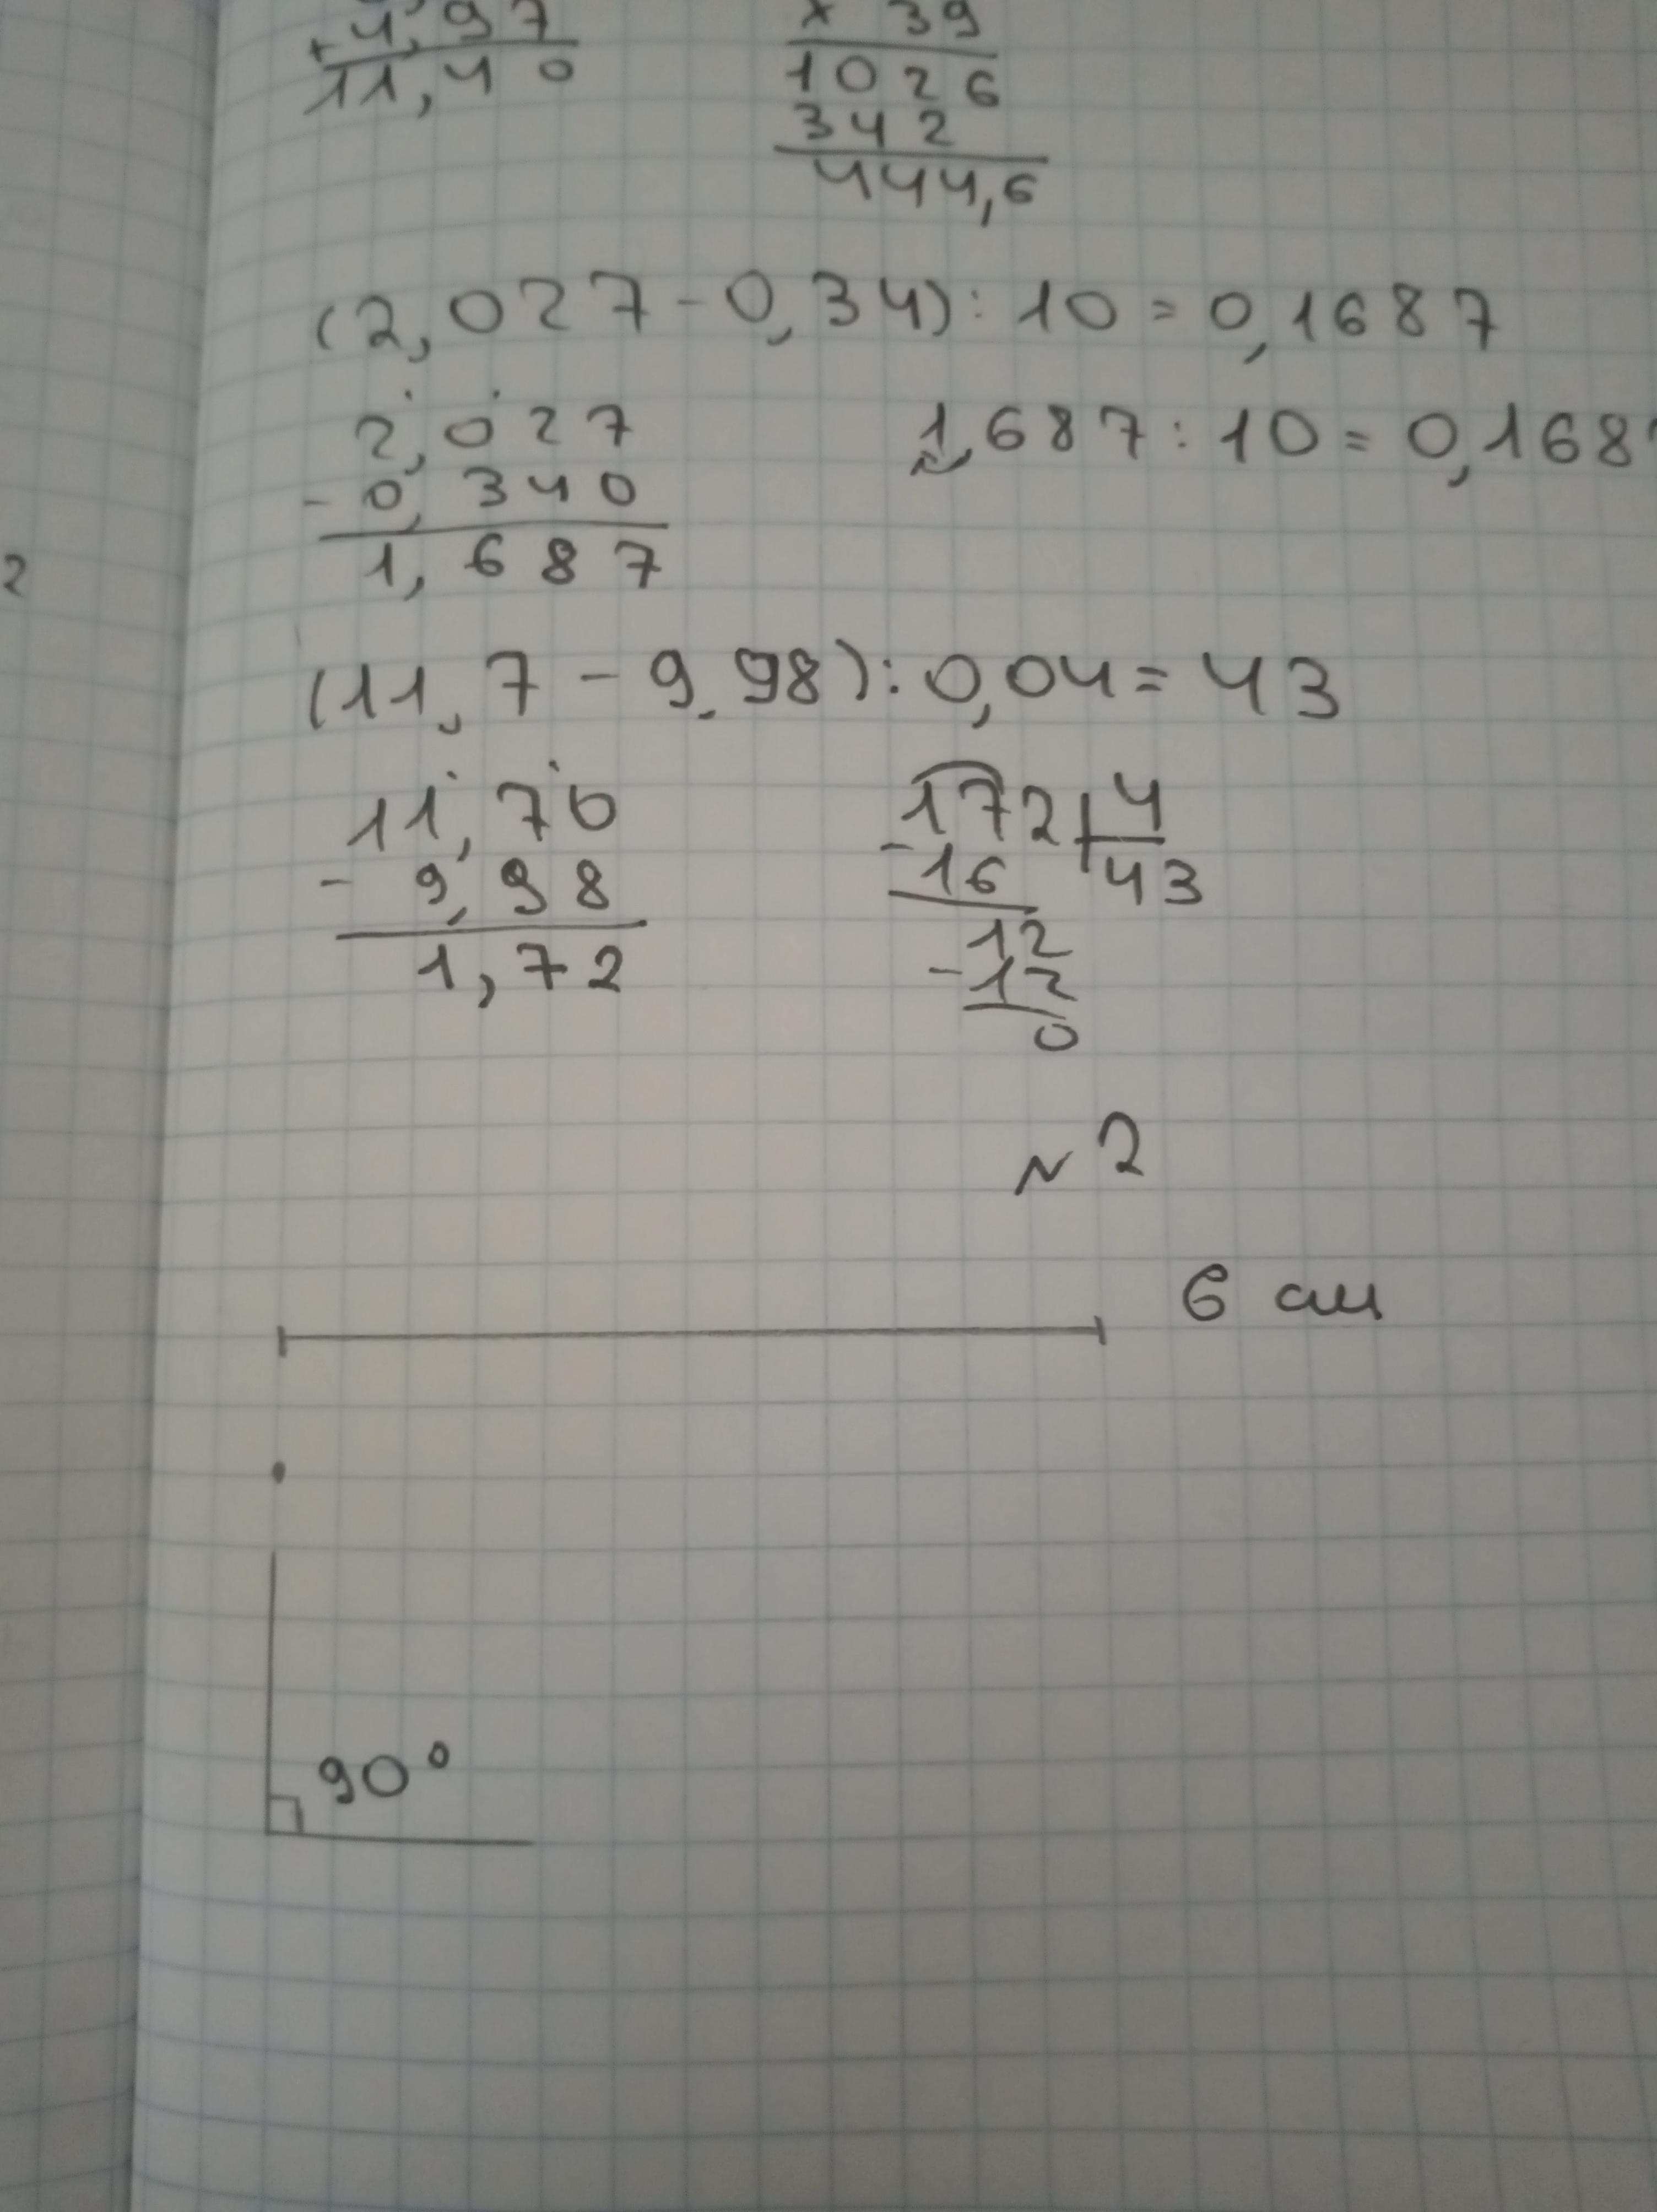 + 4,97
11,40
× 39
1026
342
444,6
(2,027-0,34):10=0,1687
2,027
- 0,340
1,687
1,687:10=0,168
2
(11,7-9,98):0,04=43
11,70
- 9,98
1,72
172 4
-16 43
12
-12
0
№2
6 см
90°